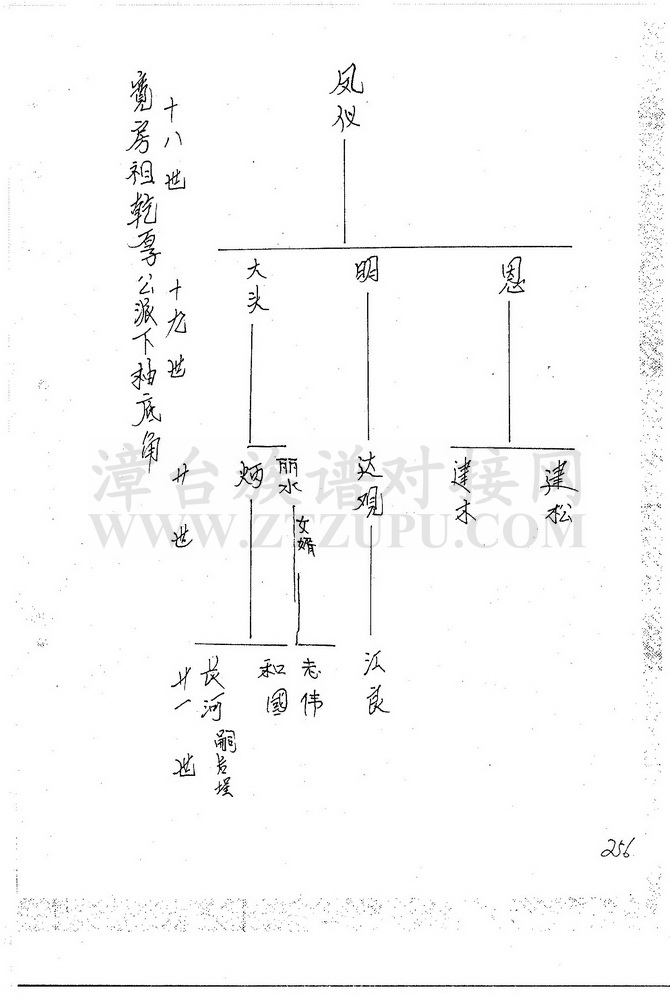 寬房祖乾厚公派下柚底角
十八世
十九世
廿世
廿一世
凤仪
大头
明
恩
炳
丽水
女婿
达观
建木
建松
长河
和國
志伟
江良
漳台族谱对接网
WWW.ZTZUPU.COM
256